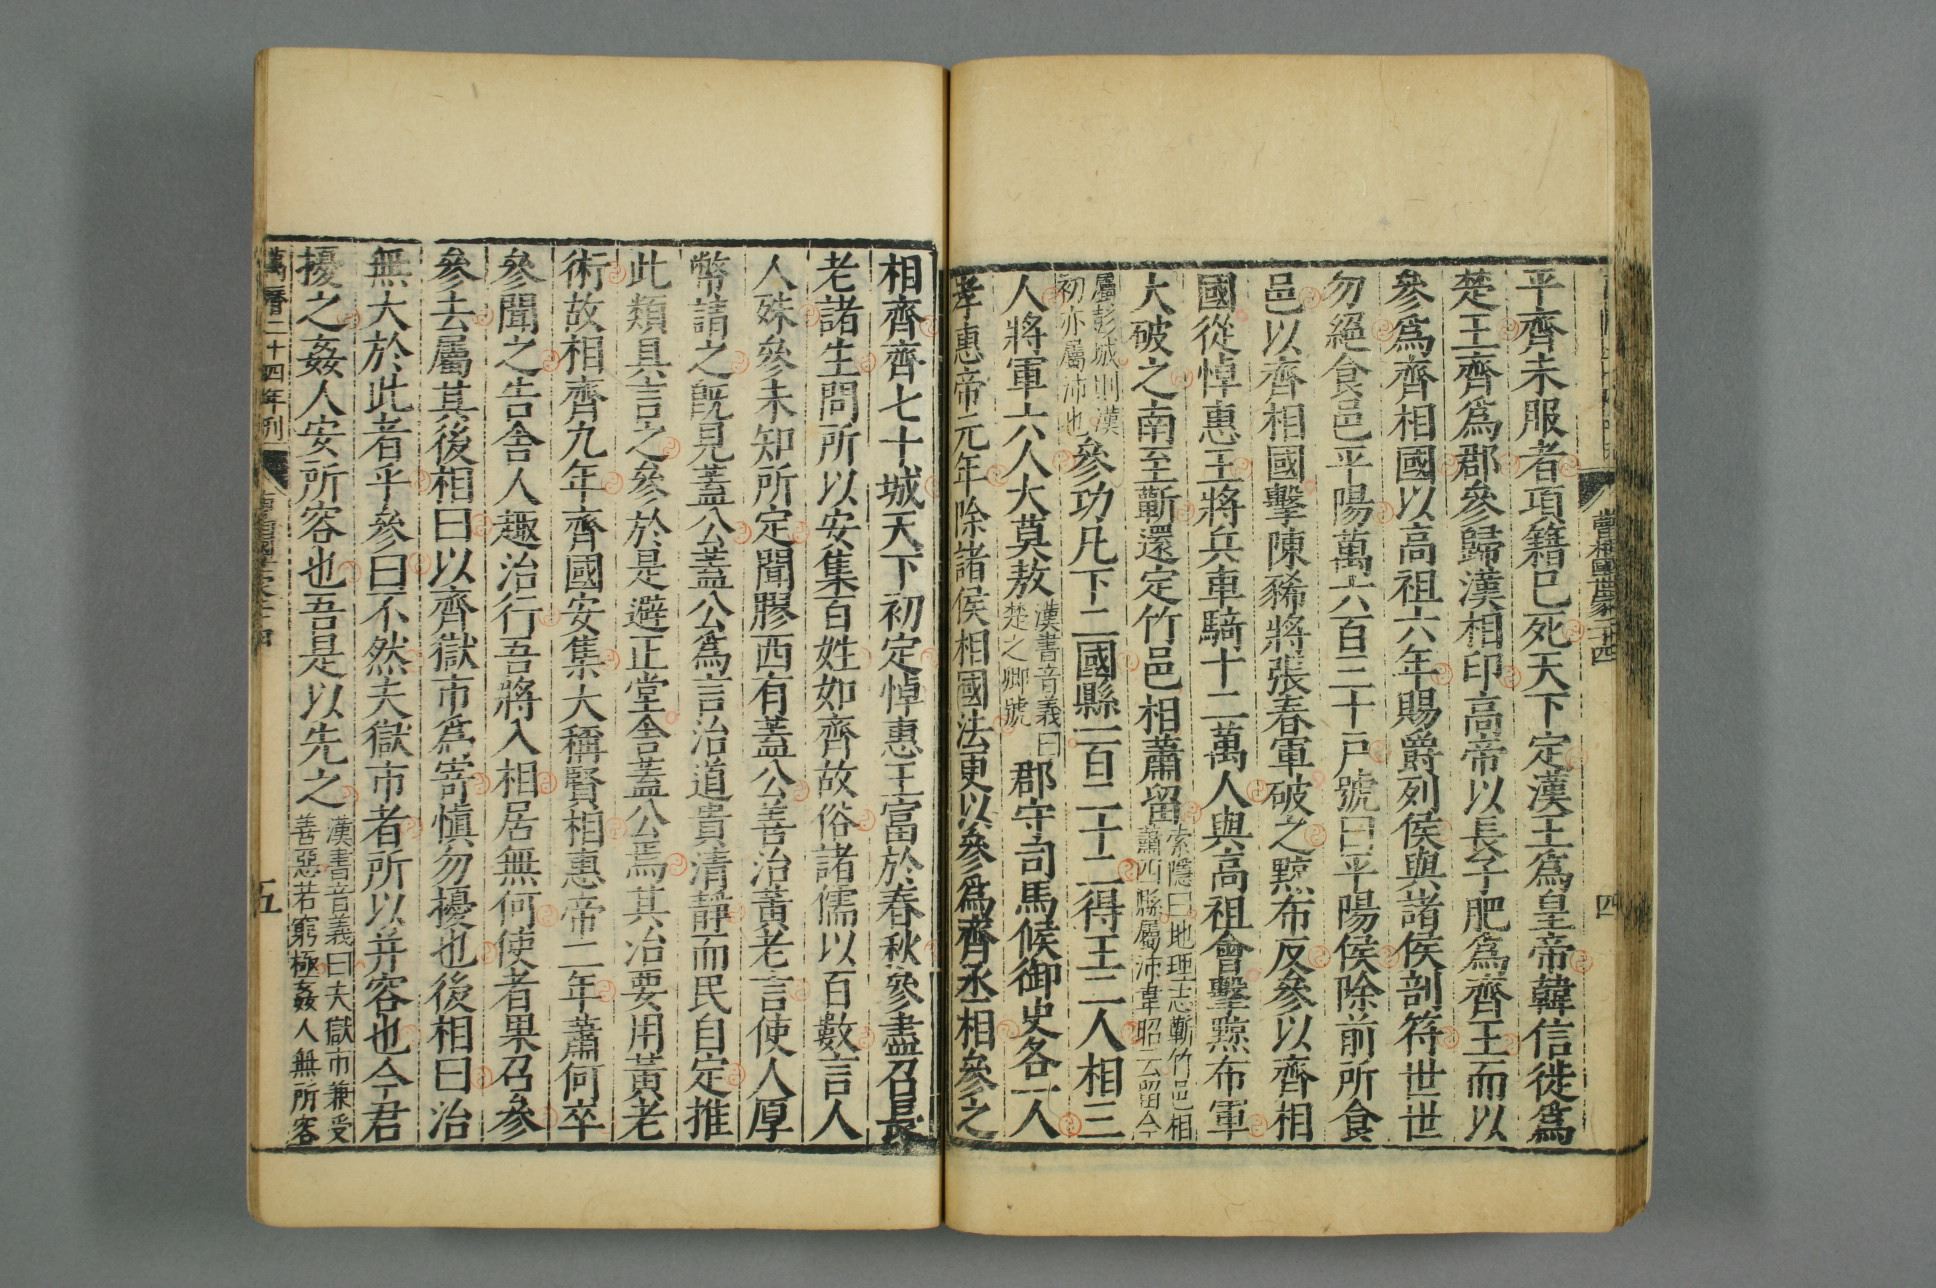 曹相國世家二十四
四
平齊未服者項籍已死天下定漢王爲皇帝韓信徙爲
楚王齊爲郡參歸漢相印高帝以長子肥爲齊王而以
參爲齊相國以高祖六年賜爵列侯與諸侯剖符世世
勿絕食邑平陽萬六百三十戶號曰平陽侯除前所食
邑以齊相國擊陳豨將張春軍破之黥布反參以齊相
國從悼惠王將兵車騎十二萬人與高祖會擊黥布軍
大破之南至蘄還定竹邑相蕭留索隱曰地理志蘄竹邑相蕭四縣屬沛韋昭云留今
屬彭城則漢初亦屬沛也參功凡下二國縣一百二十二得王二人相三
人將軍六人大莫敖漢書音義曰楚之卿號郡守司馬候御史各一人
孝惠帝元年除諸侯相國法更以參爲齊丞相參之
相齊齊七十城天下初定悼惠王富於春秋參盡召長
老諸生問所以安集百姓如齊故俗諸儒以百數言人
人殊參未知所定聞膠西有蓋公善治黃老言使人厚
幣請之旣見蓋公蓋公爲言治道貴清靜而民自定推
此類具言之參於是避正堂舍蓋公焉其治要用黃老
術故相齊九年齊國安集大稱賢相惠帝二年蕭何卒
參聞之告舍人趣治行吾將入相居無何使者果召參
參去屬其後相曰以齊獄市爲寄愼勿擾也後相曰治
無大於此者乎參曰不然夫獄市者所以并容也今君
擾之姦人安所容也吾是以先之漢書音義曰夫獄市兼受善惡若窮極姦人無所容
萬曆二十四年刊
五